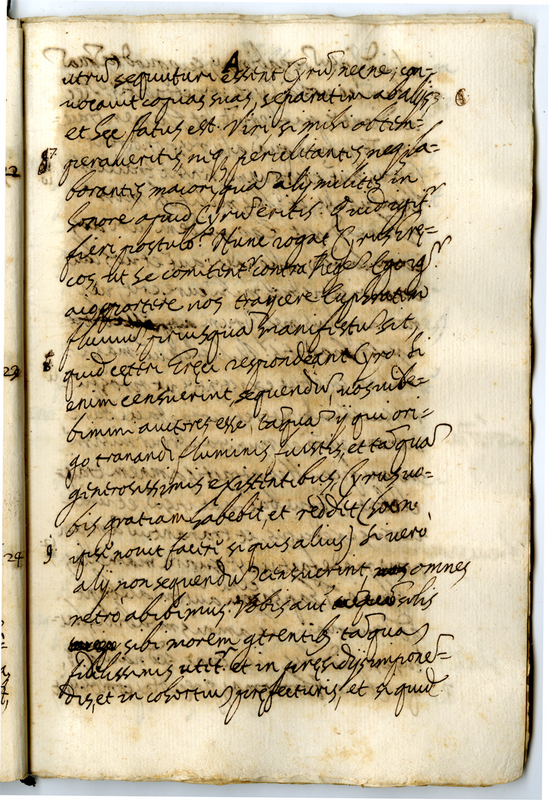 A
utrũ sequuturi essent Cyrũ necne, con-
uocauit copias suas, separatim ab alijs 6
et hęc fatus est. Viri si mihi obtem-
7 peraueritis, neq; periclitantes neq; la-
borantes maiori, quã alij milites in
honore apud Cyrũ eritis. Quid igit.
fieri postulo? Nunc rogat Cyrus Grę-
cos, ut se comitent' contra Regẽ. Ego
aio oportere nos traijcere Euphratem
fluuiũ, priusquã manifestũ sit,
8 quid cęteri Gręci respondeant Cyro. Si
enim censuerint sequendũ, uos uide-
bimini auctores esse, tãquã ij qui ori-
go tranandi fluminis fuistis, et tãquã
generosissimis existentibus Cyrus uo-
bis gratiam habebit, et reddet (hoc
ipse nouit facere si quis alius) Si uero
9 alij non sequendũ censuerint, omnes
retrò abibimus. Vobis aut solis
sibi morem gerentib. tãquã
fidelissimis utet. et in pręsidijs imponen-
dis, et in cohortiũ pręfecturis, et si quid